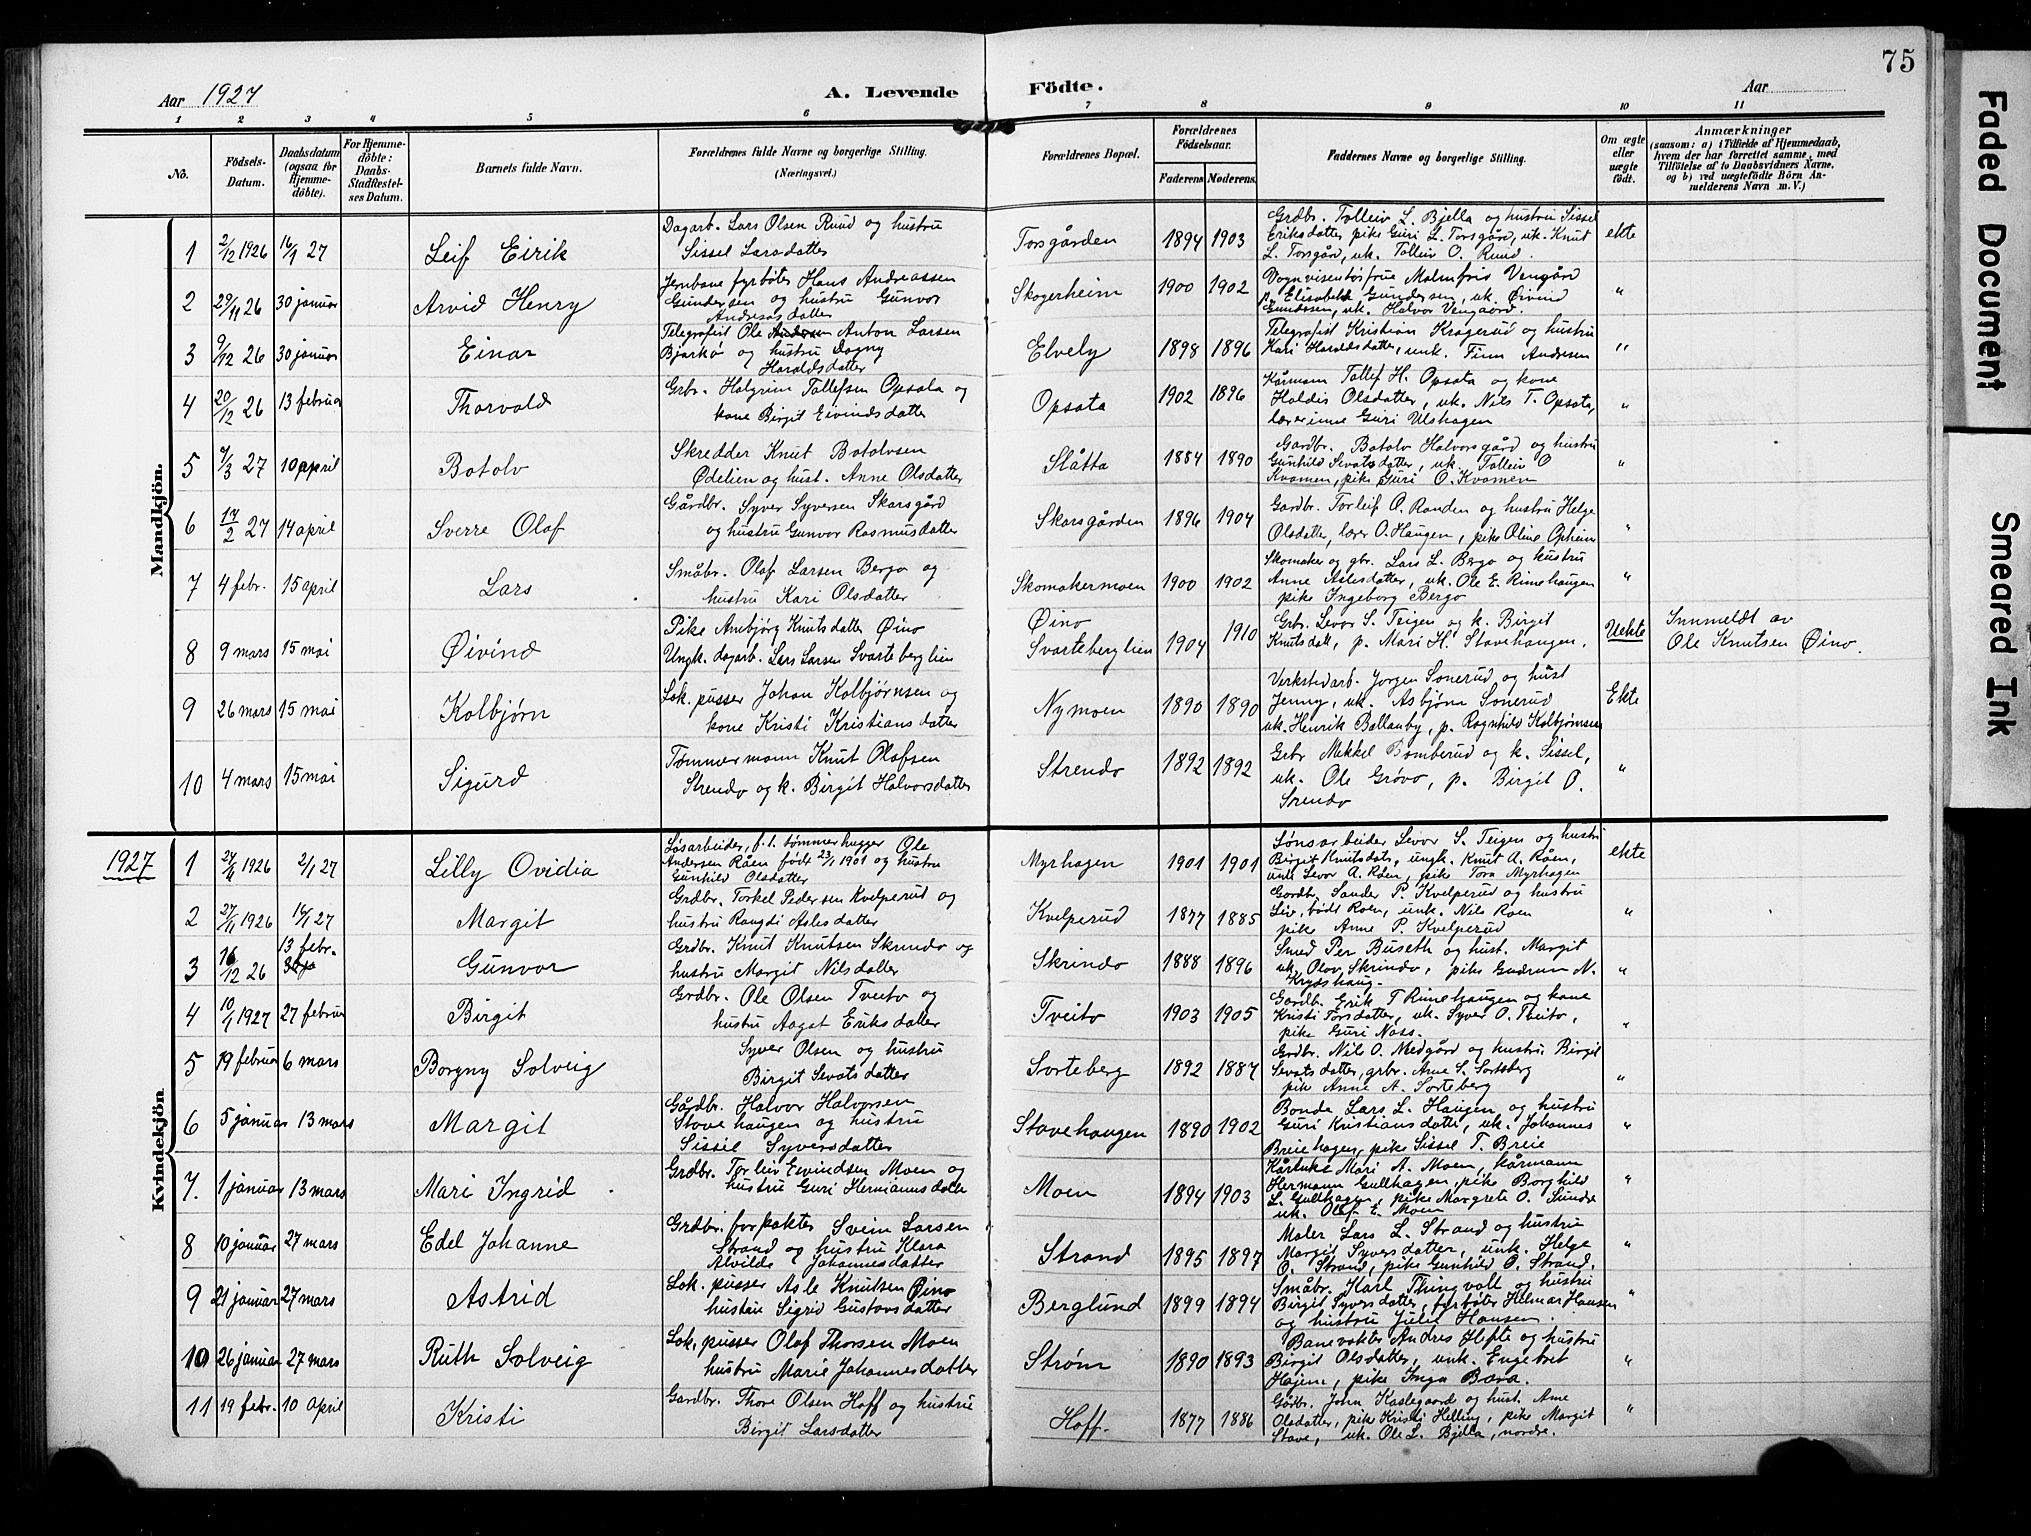 75
Aar 1927
A. Levende
Födte.
Aar
1 2 3 4 5 6 7 8 9 10 11
No.
Födsels-
Datum.
Daabsdatum
(ogsaa for
Hjemme-
döbte).
For Hjemme-
döbte:
Daabs-
Stadfæstel-
ses Datum.
Barnets fulde Navn.
Forældrenes fulde Navne og borgerlige Stilling.
(Næringsvei.)
Forældrenes Bopæl.
Forældrenes
Födselsaar.
Faderens.
Moderens.
Faddernes Navne og borgerlige Stilling.
Om ægte
eller
uægte
födt.
Anmærkninger
(saasom: a) i Tilfælde af Hjemmedaab,
hvem der har forrettet samme, med
Tilföielse af to Daabsvidners Navne,
og b) ved uægtefödte Börn An-
melderens Navn m. V.)
Mandkjön.
1 2/12 1926 16/1 27 Leif Eirik
Dagarb. Lars Olsen Ruud og hustru
Sissel Larsdatter
Torsgården 1894 1903
Grdbr. Tolleiv L. Bjella og hustru Sissel
Eriksdatter, pike Guri L. Torsgård, uk. Knut
L. Torsgård, uk. Tolleiv O. Ruud.
ekte
2 29/11 26 30 januar Arvid Henry
Jernbane fyrbøter Hans Andreassen
Gundersen og hustru Gunvor
Andreasdatter
Skogerheim 1900 1902
Vognvisentørfrue Malmfrid Vengård
p. Elisabeth Gundersen, uk. Øivind
Gundersen, uk. Halvor Vengaard.
"
3 9/12 26 30 januar Einar
Telegrafist Ole Anton Larsen
Bjørkø og hustru Dagny
Haraldsdatter
Elvely 1898 1896
Telegrafist Kristian Kragerud og hustru
Kari Haraldsdatter, unk. Finn Andresen
"
4 20/12 26 13 februar Thorvald
Grbr. Halgrim Tollefsen Opsata og
kone Birgit Eivindsdatter
Opsata 1902 1896
Kårmann Tollef H. Opsata og kone
Haldis Olsdatter, uk. Nils T. Opsata,
lærerinne Guri Ulshagen
"
5 7/3 27 10 april Botolv
Skredder Knut Botolvsen
Ødelien og hust. Anne Olsdatter
Slåtta 1884 1890
Gardbr. Botolv Halvorsgård og hustru
Gunhild Sevatsdatter, uk. Tolleiv O
Kvamen, pike Guri O. Kvamen
"
6 17/2 27 14 april Sverre Olaf
Gårdbr. Syver Syversen Skarsgård
og hustru Gunvor Rasmusdatter
Skarsgården 1896 1904
Gardbr. Torleif O. Randen og hustru Helge
Olsdatter, lærer O. Haugen, pike Oline Opheim
"
7 4 febr. 15 april Lars
Småbr. Olaf Larsen Bergo og
hustru Kari Olsdatter
Skomakermoen 1900 1902
Skomaker og gbr. Lars L. Bergo og hustru
Anne Aslesdatter, uk. Ole E. Rimehaugen
pike Ingeborg Bergo
"
8 9 mars 15 mai Øivind
Pike Ambjørg Knutsdatter Øino
Ungk. dagarb. Lars Larsen Svarteberglien
Øino
Svarteberglien 1904 1910
Grbr. Levor S. Teigen og k. Birgit
Knutsdatt, p. Mari H. Stavehaugen.
Uekte
Innmeldt av
Ole Knutsen Øino.
9 26 mars 15 mai Kolbjørn
Lok. pusser Johan Kolbjørnsen og
kone Kristi Kristiansdatter
Nymoen 1890 1890
Verkstedarb. Jørgen Sonerud og hust
Jenny, uk. Asbjørn Sonerud
uk. Henrik Ballauby, p. Ragnhild Kolbjørnsen
Ekte
10 4 mars 15 mai Sigurd
Tømmermann Knut Olafsen
Strendo og k. Birgit Halvorsdatter
Strendo 1892 1892
Grbr Mekkel Bomberud og k. Sissel,
uk. Ole Grøvo, p. Birgit O.
Srendo
"
1927
Kvindekjön
1 24/11 1926 2/1 27 Lilly Ovidia
Løsarbeider, f. t. tømmerhugger Ole
Andersen Råen født 23/1 1901 og hustru
Gunhild Olsdatter
Myrhagen 1901 1901
Lønsarbeider Levor S. Teigen og hustru
Birgit Knutsdatr, ungk. Knut A. Råen,
unk Levor A. Råen, pike Tora Myrhagen
ekte
2 27/11 1926 16/1 27 Margit
Grdbr. Torkel Pedersen Kvelperud og
hustru Rangdi Aslesdatter
Kvelperud 1877 1885
Gardbr. Sander P. Kvelperud og hustru
Liv, født Roen, unk. Nils Roen
pike Anne P. Kvelperud
"
3 16/12 26 13 febr. Gunvor
Grdbr. Knut Knutsen Skrindo og
hustru Margit Nilsdatter
Skrindo 1888 1896
Smed Per Buseth og hust. Margit
uk. Olov Skrindo, pike Gudrun N.
Krydshaug.
"
4 10/1 1927 27 februar Birgit
Grdbr. Ole Olsen Tveito og
hustru Aagot Eriksdatter
Tveito 1903 1905
Gardbr. Erik T Rimehaugen og kone
Kristi Torsdatter, uk. Syver O. Tveito,
pike Guri Noss.
"
5 19 februar 6 mars Borgny Solveig
Syver Olsen og hustru
Birgit Sevatsdatter
Sorteberg 1892 1887
Grdbr. Nils O. Medgård og hustru Birgit
Sevatsdatter, grbr. Arne S. Sorteberg
pike Anne A. Sorteberg
"
6 5 januar 13 mars Margit
Gårdbr. Halvor Halvorsen
Stavehaugen og hustru
Sissil Syversdatter
Stavehaugen 1890 1902
Bonde Lars L. Haugen og hustru
Guri Kristiansdatter, uk. Johannes
Breiehagen, pike Sissel T. Breie
"
7. 1 januar 13 mars Mari Ingrid
Grdbr. Torleiv Eivindsen Moen og
hustru Guri Hermannsdatter
Moen 1894 1903
Kårenke Mari A. Moen, kårmann
Hermann Gullhagen, pike Borghild
L. Gullhagen, pike Margrete O. Sundre
uk. Olaf E. Moen
"
8 10 januar 27 mars Edel Johanne
Grdbr. forpakter Svein Larsen
Strand og hustru Klara
Alvilde Johannesdatter
Strand 1895 1897
Maler Lars L. Strand og hustru
Margit Syversdatter, unk. Helge
O. Strand, pike Gunhild O. Strand.
"
9 21 januar 27 mars Astrid
Lok. pusser Asle Knutsen Øino
hustru Sigrid Gustavsdatter
Berglund 1899 1894
Småbr. Karl Thingvolt og hustru
Birgit Syversdatter, fyrbøter Helmar Hansen
og hustru Julie Hansen.
"
10 26 januar 27 mars Ruth Solveig
Lok. pusser Olaf Thorsen Moen
hustru Marie Johannesdatter
Strøm 1890 1893
Banevokter Andres Hefte og hustru
Birgit Olsdatter, unk. Engebret
Hajem, pike Inga Bara.
"
11 19 febr. 10 April Kristi
Gardbr. Thore Olsen Hoff og hustru
Birgit Larsdatter
Hoff. 1877 1886
Gårdbr. John Kaslegaard og hust. Arne
Olsdatter, pike Kristi Helling, pike Margit
Stave, uk. Ole L. Bjella, nordre.
"
Faded Document
Smeared Ink